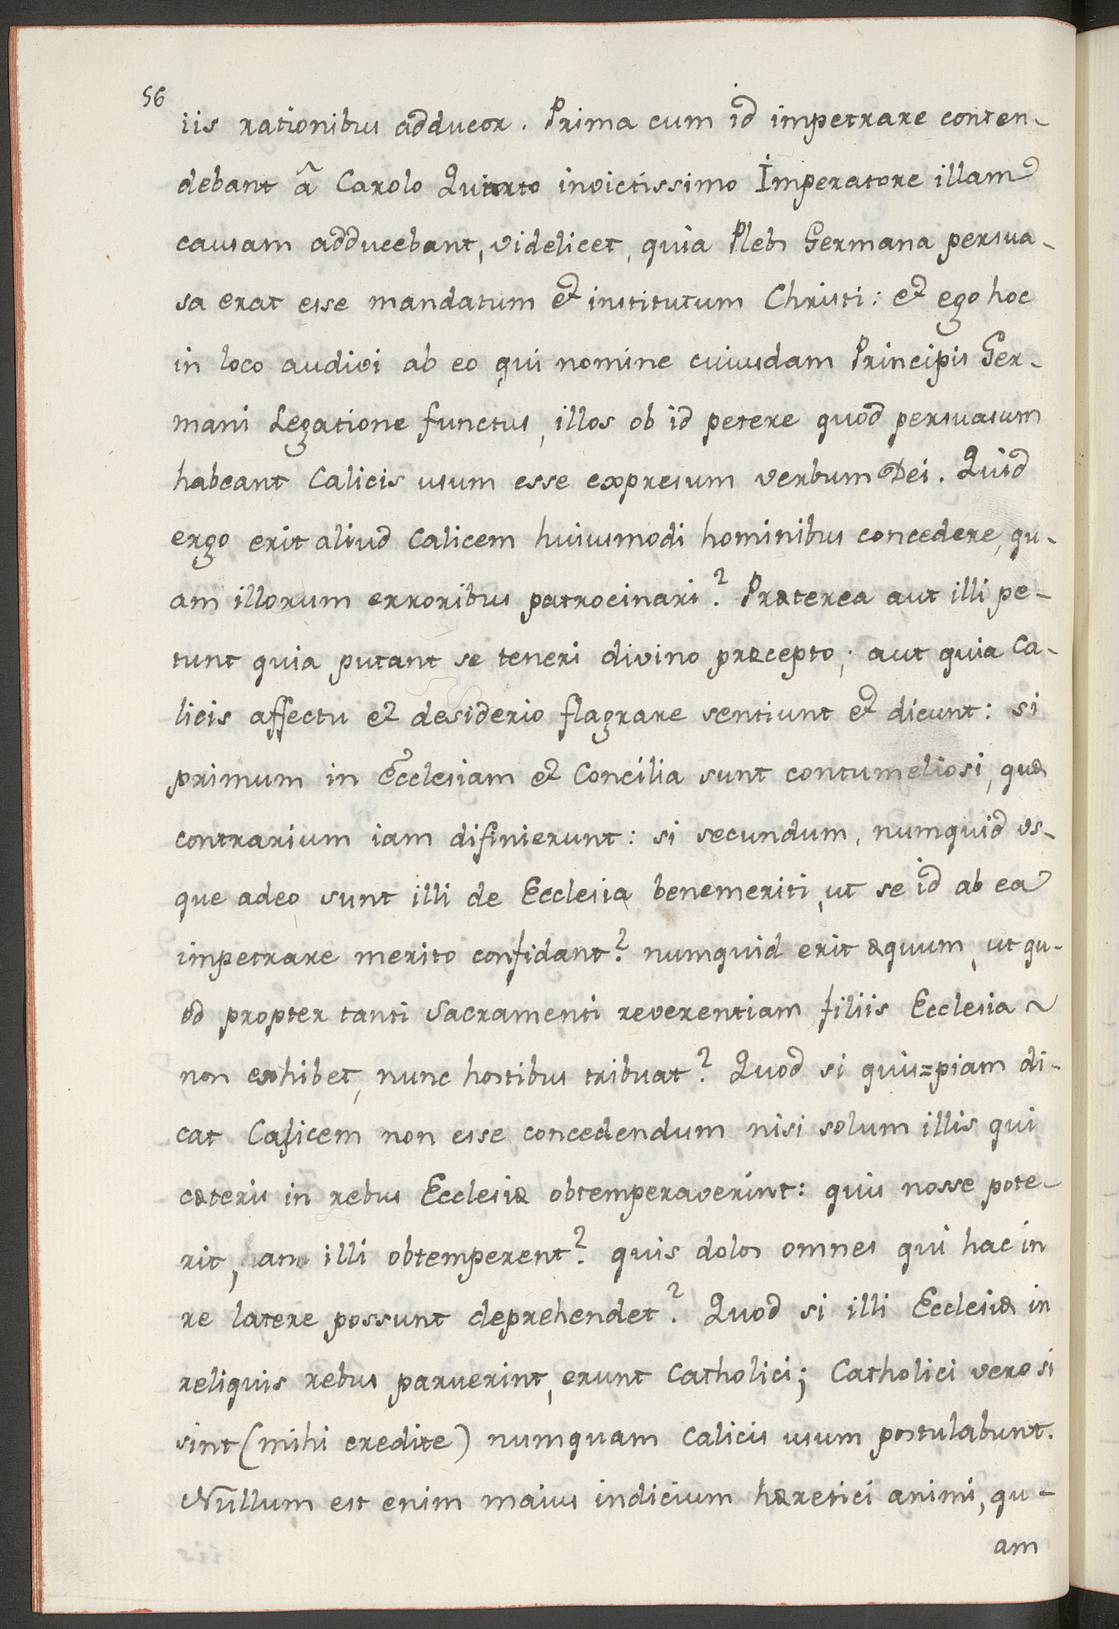 56
iis rationibus adducor. Prima cum id impetrare conten-
debant â Carolo Quinto invictissimo Imperatore illam
causam adducebant, videlicet, quia Plebs Germana persua-
sa erat esse mandatum et institutum Christi: et ego hoc
in loco audivi ab eo qui nomine cuiusdam Principis Ger-
mani Legatione functus, illos ob id petere quod persuasum
habeant Calicis usum esse expresum verbum Dei. Quid
ergo erit aliud Calicem huiusmodi hominibus concedere, qu-
am illorum erroribus patrocinari? Præterea aut illi pe-
tunt quia putant se teneri divino præcepto; aut quia Ca-
licis affectu et desiderio flagrare sentiunt et dicunt: si
primum in Ecclesiam et Concilia sunt contumeliosi, quæ
contrarium iam difinierunt: si secundum, numquid us-
que adeo sunt illi de Ecclesia benemeriti, ut se id ab ea
impetrare merito confidant? numquid erit æquum, ut qu-
od propter tanti Sacramenti reverentiam filiis Ecclesia
non exhibet, nunc hostibus tribuat? Quod si quis=piam di-
cat Calicem non esse concedendum nisi solum illis qui
cæteris in rebus Ecclesiæ obtemperaverint: quis nosse pote-
rit, an illi obtemperent? quis dolos omnes qui hac in
re latere possunt deprehendet? Quod si illi Ecclesiæ in
reliquis rebus paruerint, erunt Catholici; Catholici vero si
sint (mihi credite) numquam Calicis usum postulabunt.
Nullum est enim maius indicium hæretici animi, qu-
am